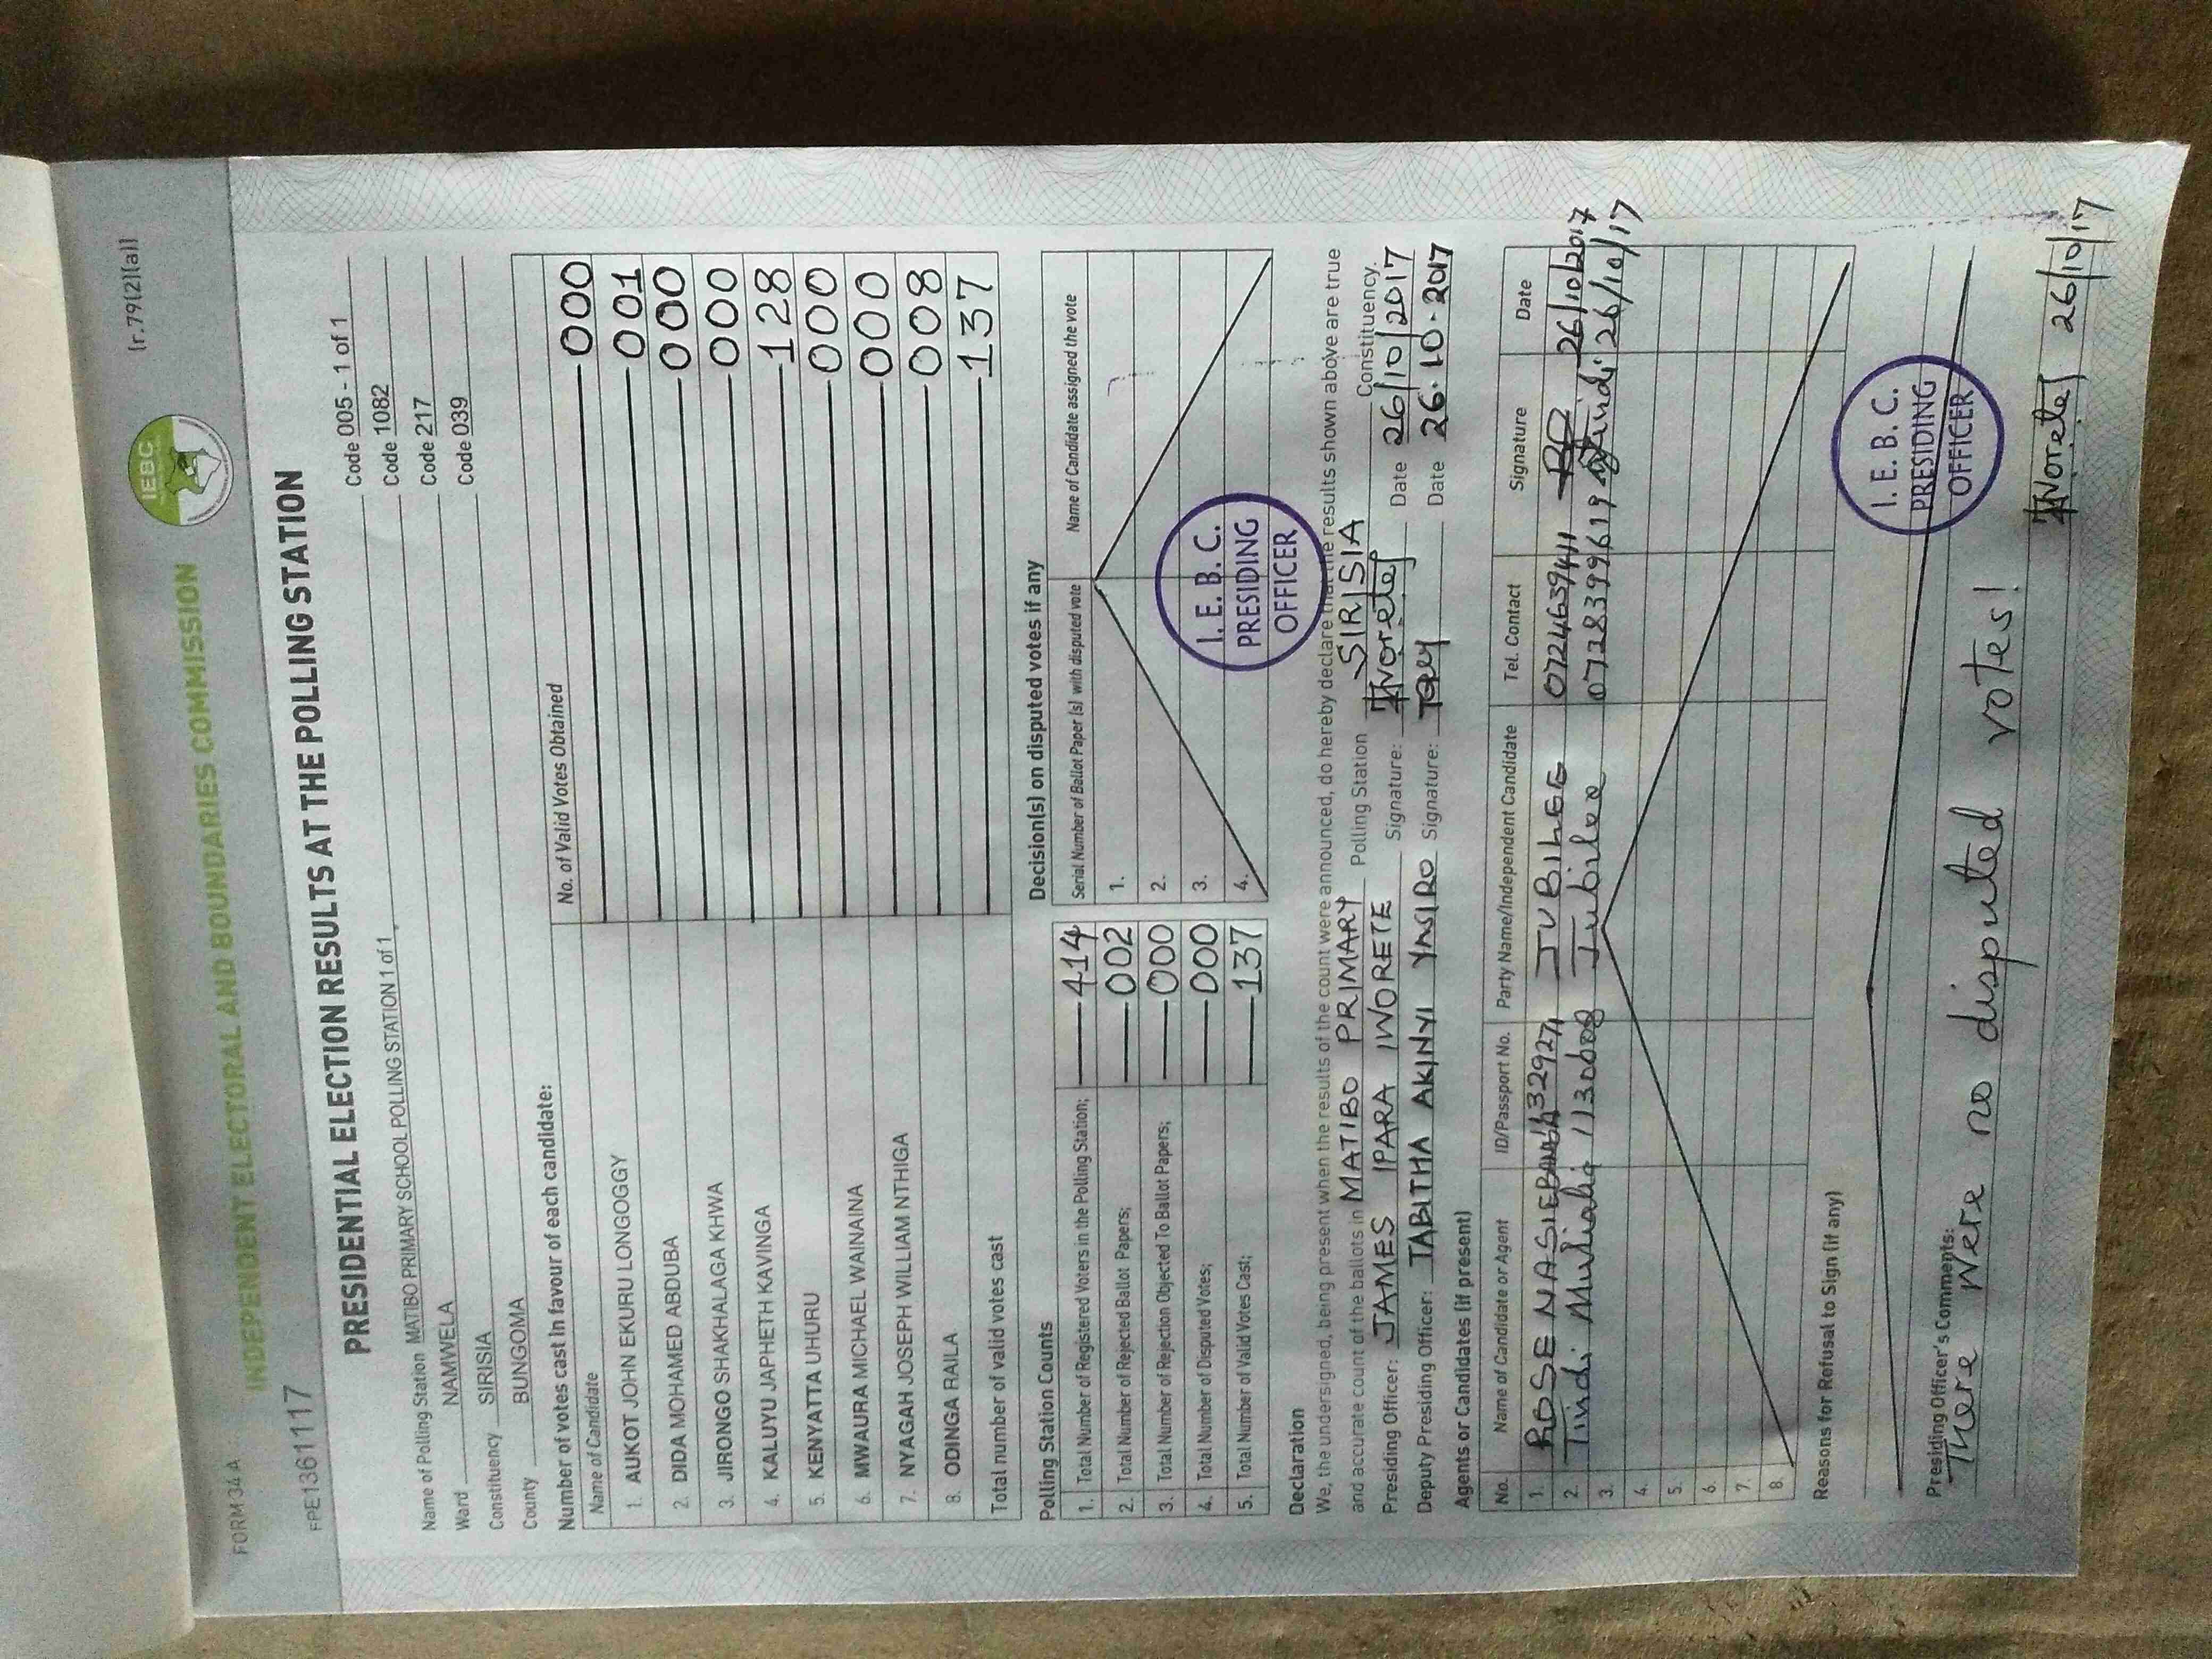 FORM 34 A
(r.79(2)(a))
IEBC
INDEPENDENT ELECTORAL AND BOUNDARIES COMMISSION
FPE1361117
PRESIDENTIAL ELECTION RESULTS AT THE POLLING STATION
Name of Polling Station MATIBO PRIMARY SCHOOL POLLING STATION 1 of 1 Code 005 - 1 of 1
Ward NAMWELA Code 1082
Constituency SIRISIA Code 217
County BUNGOMA Code 039
Number of votes cast in favour of each candidate:
Name of Candidate No. of Valid Votes Obtained
1. AUKOT JOHN EKURU LONGOGGY 000
2. DIDA MOHAMED ABDUBA 001
3. JIRONGO SHAKHALAGA KHWA 000
4. KALUYU JAPHETH KAVINGA 000
5. KENYATTA UHURU 128
6. MWAURA MICHAEL WAINAINA 000
7. NYAGAH JOSEPH WILLIAM NTHIGA 000
8. ODINGA RAILA 008
Total number of valid votes cast 137
Polling Station Counts
1. Total Number of Registered Voters in the Polling Station; 414
2. Total Number of Rejected Ballot Papers; 002
3. Total Number of Rejection Objected To Ballot Papers; 000
4. Total Number of Disputed Votes; 000
5. Total Number of Valid Votes Cast; 137
Decision(s) on disputed votes if any
Serial Number of Ballot Paper (s) with disputed vote Name of Candidate assigned the vote
1.
2.
3.
4.
I. E. B. C.
PRESIDING
OFFICER
Declaration
We, the undersigned, being present when the results of the count were announced, do hereby declare that the results shown above are true
and accurate count of the ballots in MATIBO PRIMARY Polling Station SIRISIA Constituency.
Presiding Officer: JAMES IPARA IWORETE Signature: Iworete Date 26/10/2017
Deputy Presiding Officer: TABITHA AKINYI YASIRO Signature: Date 26.10.2017
Agents or Candidates (if present)
No. Name of Candidate or Agent ID/Passport No. Party Name/Independent Candidate Tel. Contact Signature Date
1. ROSE NASIEBANDA JUBILEE 0724639411 26/10/2017
2. Tindi Muliali Jubilee 0728399619 Tindi 26/10/17
3.
4.
5.
6.
7.
8.
Reasons for Refusal to Sign (if any)
I. E. B. C.
PRESIDING
OFFICER
Presiding Officer's Comments:
There were no disputed votes!
Iworete 26/10/17